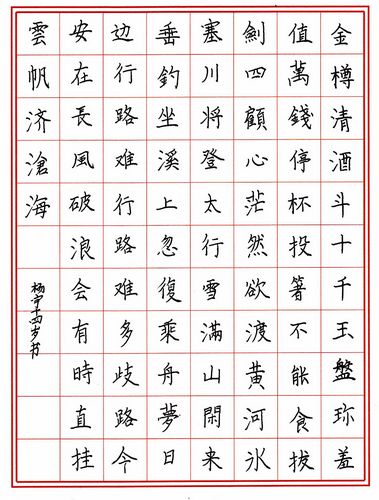 金樽清酒斗十千玉盤珎羞
值萬錢停杯投箸不能食拔
劍四顧心茫然欲渡黄河氷
塞川將登太行雪滿山閑来
垂釣坐溪上忽復乘舟夢日
边行路难行路难多歧路今
安在長風破浪会有時直挂
雲帆济滄海
杨宇十四岁书